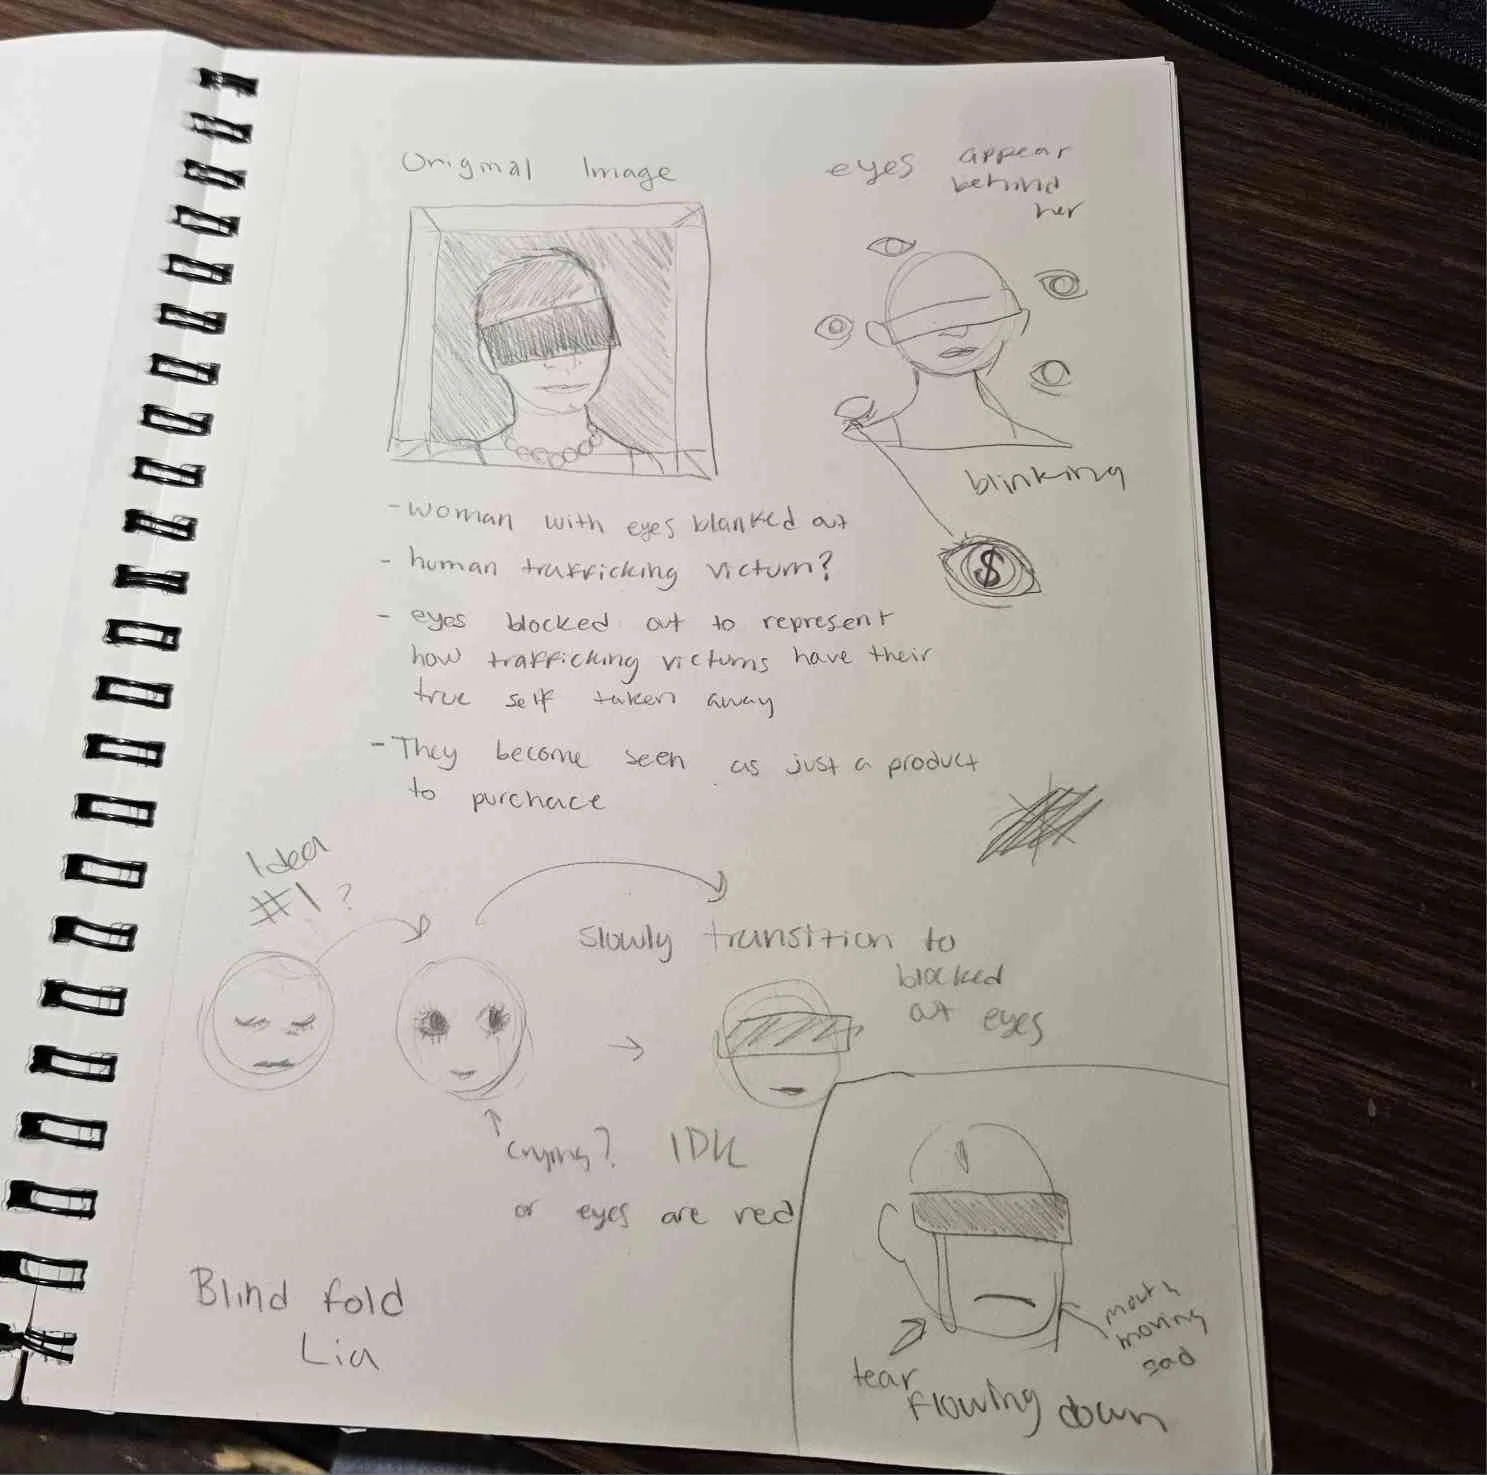 Original Image
eyes appear
behind
her
blinking
$
- woman with eyes blanked out
- human trafficking victum?
- eyes blocked out to represent
how trafficking victums have their
true self taken away
- They become seen as just a product
to purchace
Idea
#1?
slowly transition to
blocked
out eyes
crying? IDK
or eyes are red
Blind fold
Lia
mouth
moving
sad
tear
flowing down